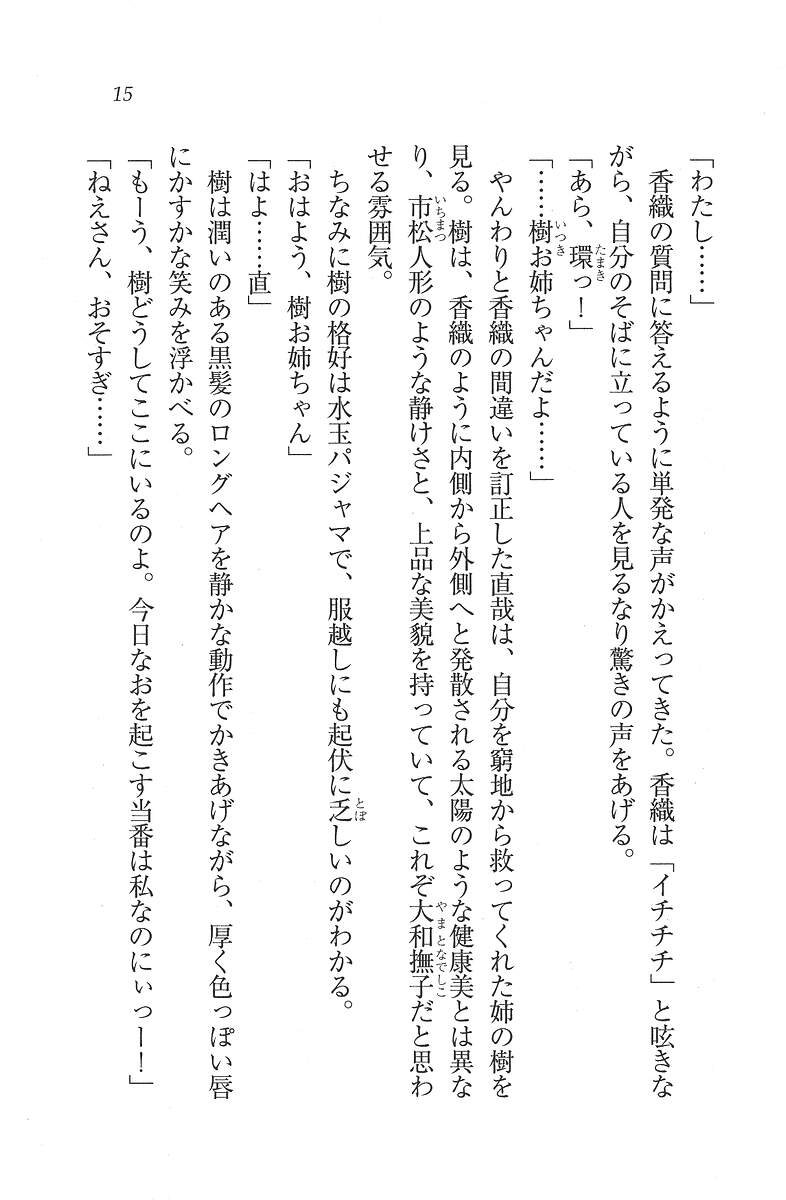 15
「わたし……」
　香織の質問に答えるように単発な声がかえってきた。香織は「イチチチ」と呟きな
がら、自分のそばに立っている人を見るなり驚きの声をあげる。
「あら、環っ！」
たまき
「……樹お姉ちゃんだよ……」
いつき
　やんわりと香織の間違いを訂正した直哉は、自分を窮地から救ってくれた姉の樹を
見る。樹は、香織のように内側から外側へと発散される太陽のような健康美とは異な
り、市松人形のような静けさと、上品な美貌を持っていて、これぞ大和撫子だと思わ
いちまつ
やまとなでしこ
せる雰囲気。
　ちなみに樹の格好は水玉パジャマで、服越しにも起伏に乏しいのがわかる。
とぼ
「おはよう、樹お姉ちゃん」
「はよ……直」
　樹は潤いのある黒髪のロングヘアを静かな動作でかきあげながら、厚く色っぽい唇
にかすかな笑みを浮かべる。
「もーう、樹どうしてここにいるのよ。今日なおを起こす当番は私なのにぃっー！」
「ねえさん、おそすぎ……」